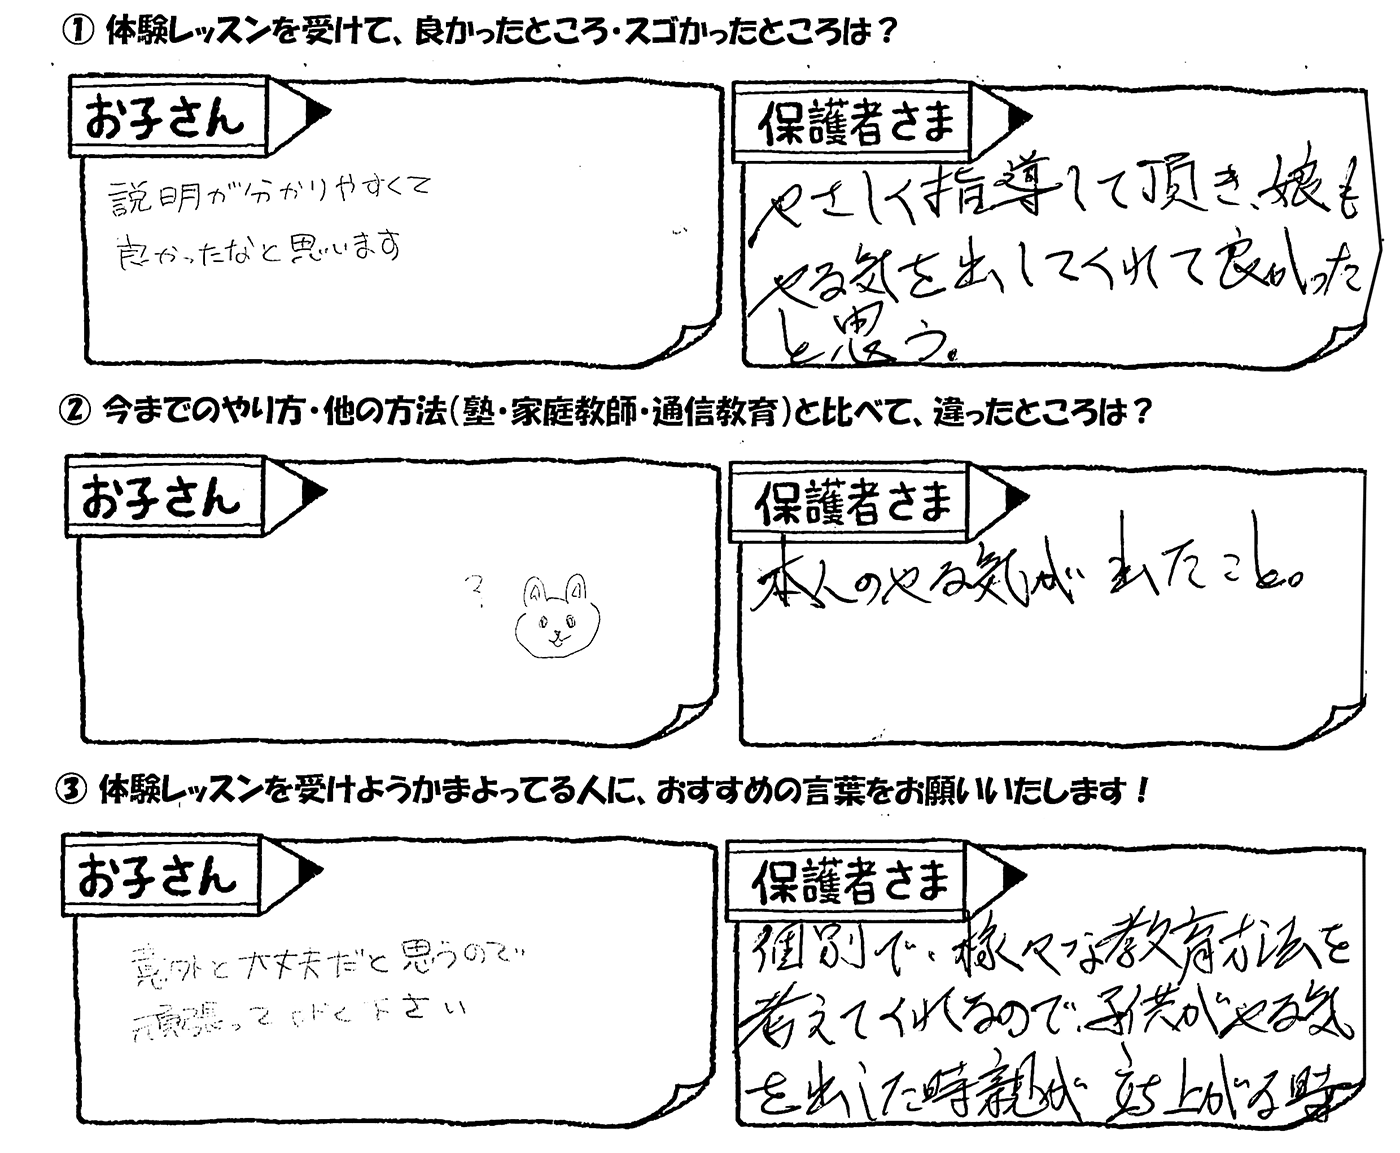 ① 体験レッスンを受けて、良かったところ・スゴかったところは？
お子さん
説明が分かりやすくて
良かったなと思います
保護者さま
やさしく指導して頂き、娘も
やる気を出してくれて良かった
と思う。
② 今までのやり方・他の方法（塾・家庭教師・通信教育）と比べて、違ったところは？
お子さん
?
保護者さま
本人のやる気が出たこと。
③ 体験レッスンを受けようかまよってる人に、おすすめの言葉をお願いいたします！
お子さん
意外と大丈夫だと思うので
頑張ってみて下さい
保護者さま
個別で、様々な教育方法を
考えてくれるので、子供がやる気
を出した時親が立ち上がる時